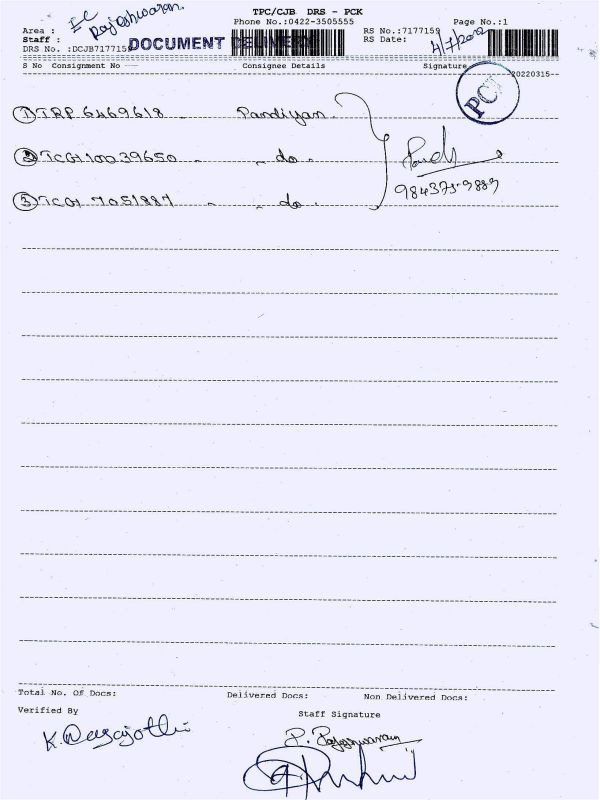 TPC/CJB DRS - PCK
Phone No.:0422-3505555
Page No.:1
Ic Rajeshwaran.
Area :
Staff :
DRS No. :DCJB717715
DOCUMENT
RS No.:7177159
RS Date:
S No Consignment No
Consignee Details
Signature
20220315
PCK
① TRP 6469618 - Pandiyan.
② TCG1 10039650 - " do .
③ TCG1 7051887 - " do .
Total No. Of Docs:
Delivered Docs:
Non Delivered Docs:
Verified By
Staff Signature
P. Rajeshwaran